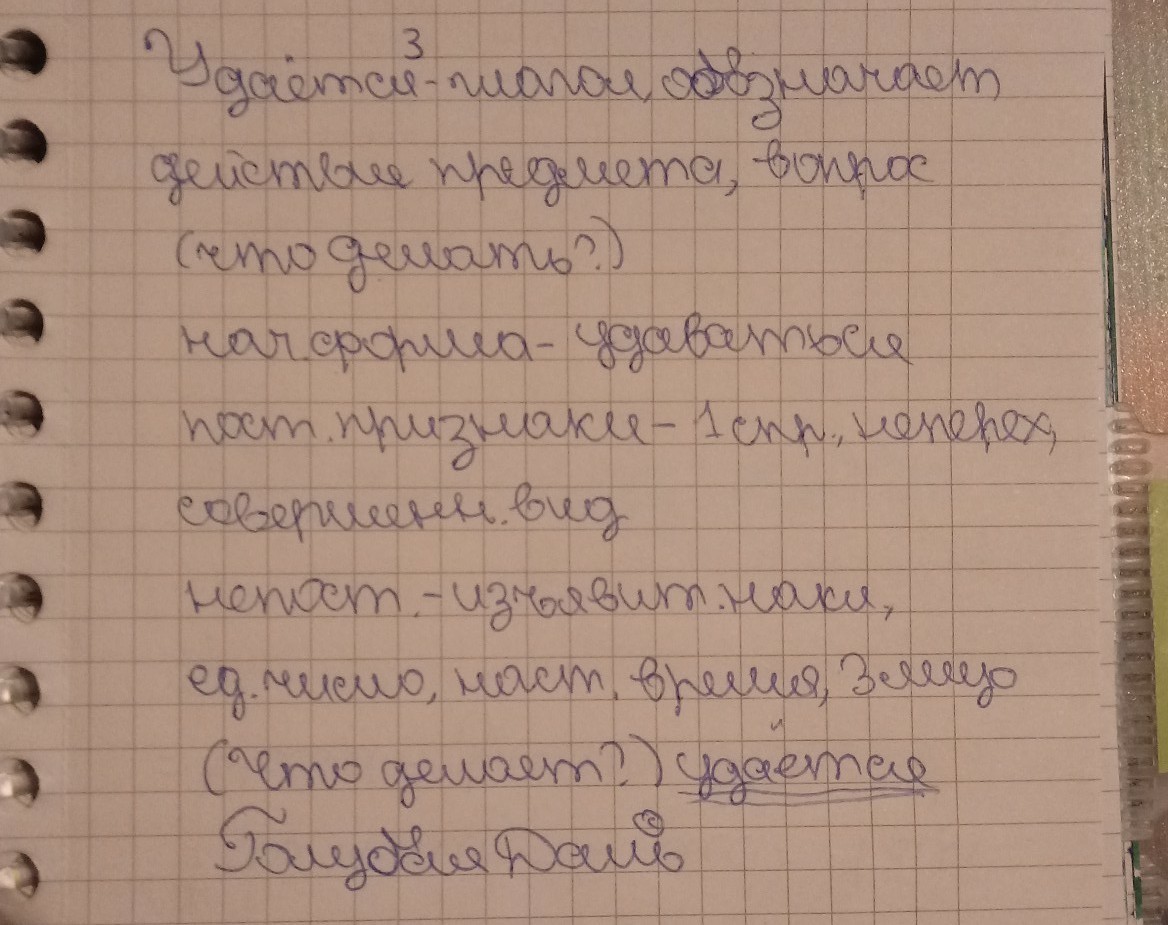 Удаётся³-глагол, обозначает
действие предмета, вопрос
(что делать?)
нач.форма- удаваться
пост.признаки- 1 спр., неперех,
совершенн.вид
непост.-изъявит.накл,
ед.число, наст. время, 3 лицо
(что делает?) удаётся
Голубая Даль